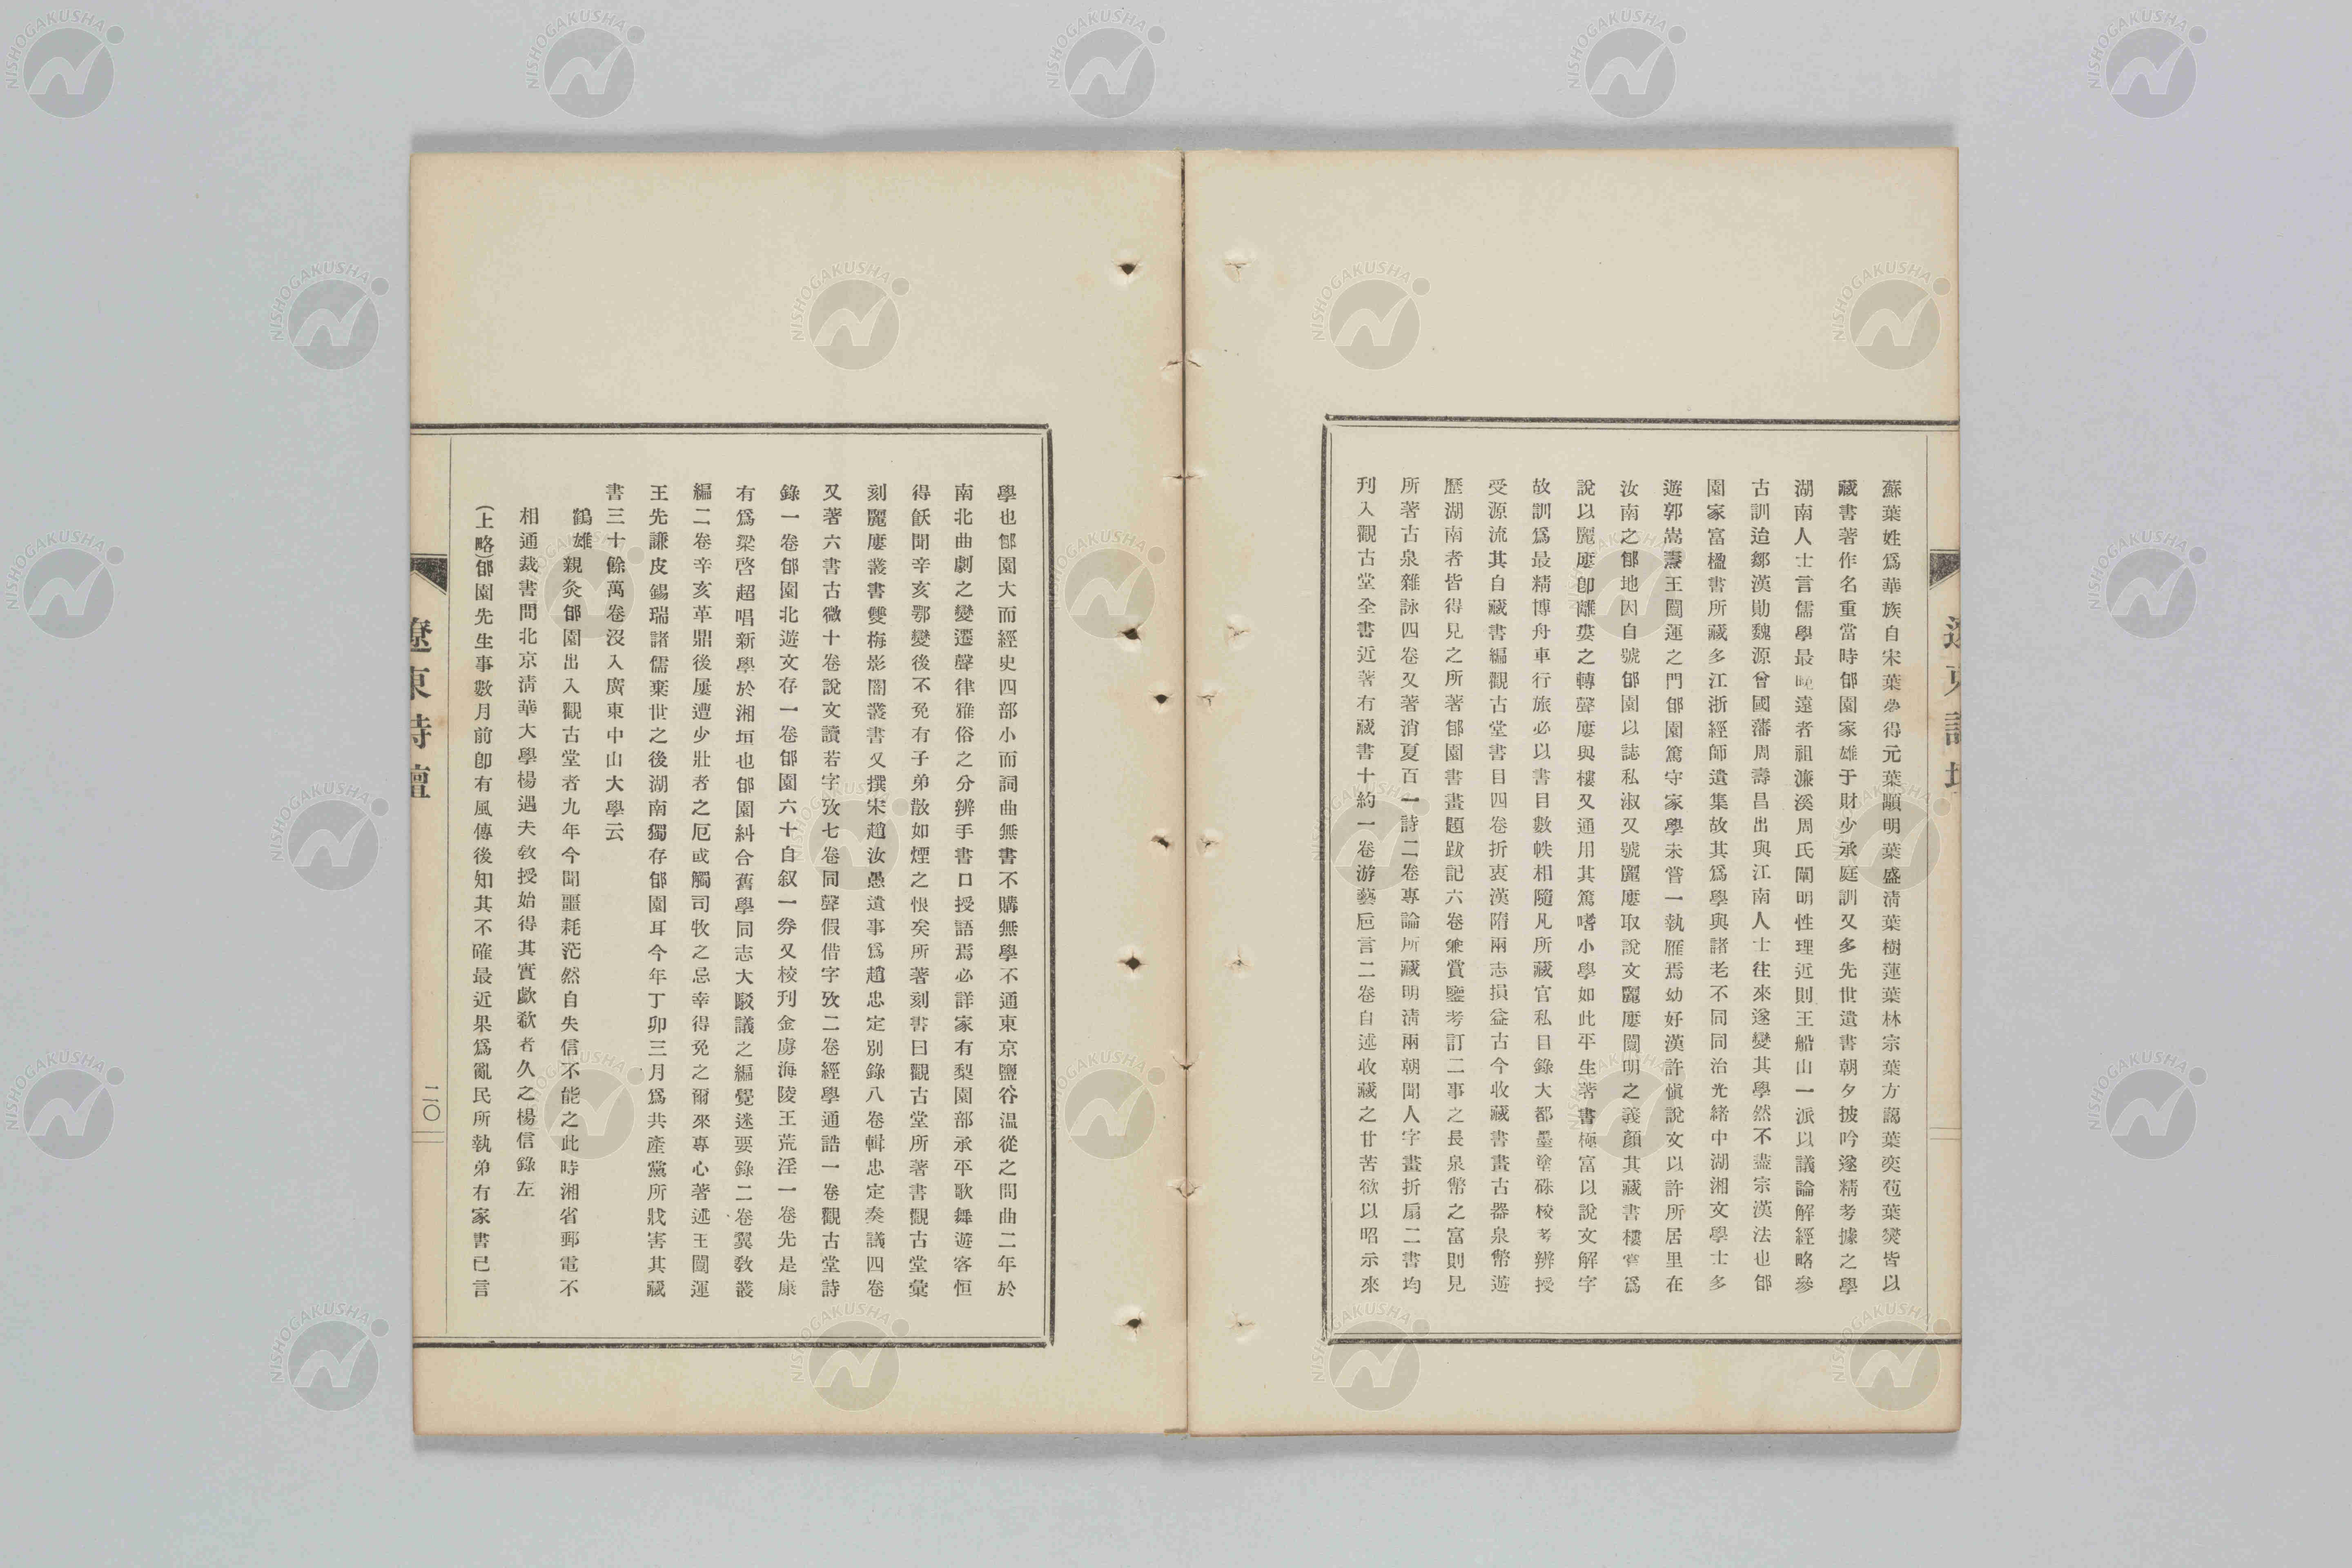 蘇葉姓爲華族自宋葉夢得元葉顒明葉盛淸葉樹蓮葉林宗葉方藹葉奕苞葉燮皆以
藏書著作名重當時郋園家雄于財少承庭訓又多先世遺書朝夕披吟遂精考據之學
湖南人士言儒學最晚遠者祖濂溪周氏闡明性理近則王船山一派以議論解經略參
古訓迨鄒漢勛魏源曾國藩周壽昌出與江南人士往來遂變其學然不盡宗漢法也郋
園家富楹書所藏多江浙經師遺集故其爲學與諸老不同同治光緒中湖湘文學士多
遊郭嵩燾王闓運之門郋園篤守家學未嘗一執雁焉幼好漢許愼說文以許所居里在
汝南之郋地因自號郋園以誌私淑又號麗廔取說文麗廔闓明之義顏其藏書樓實爲
說以麗廔卽離婁之轉聲廔與樓又通用其篤嗜小學如此平生著書極富以說文解字
故訓爲最精博舟車行旅必以書目數帙相隨凡所藏官私目錄大都墨塗硃校考辨授
受源流其自藏書編觀古堂書目四卷折衷漢隋兩志損益古今收藏書畫古器泉幣遊
歷湖南者皆得見之所著郋園書畫題跋記六卷兼賞鑒考訂二事之長泉幣之富則見
所著古泉雜詠四卷又著消夏百一詩二卷專論所藏明淸兩朝聞人字畫折扇二書均
刊入觀古堂全書近著有藏書十約一卷游藝卮言二卷自述收藏之甘苦欲以昭示來
遼東詩壇
學也郋園大而經史四部小而詞曲無書不購無學不通東京鹽谷温從之問曲二年於
南北曲劇之變遷聲律雅俗之分辨手書口授語焉必詳家有梨園部承平歌舞遊客恒
得飫聞辛亥鄂變後不免有子弟散如煙之恨矣所著刻書曰觀古堂所著書觀古堂彙
刻麗廔叢書雙梅影闇叢書又撰宋趙汝愚遺事爲趙忠定別錄八卷輯忠定奏議四卷
又著六書古微十卷說文讀若字攷七卷同聲假借字攷二卷經學通誥一卷觀古堂詩
錄一卷郋園北遊文存一卷郋園六十自叙一券又校刊金虜海陵王荒淫一卷先是康
有爲梁啓超唱新學於湘垣也郋園糾合舊學同志大駁議之編覺迷要錄二卷翼敎叢
編二卷辛亥革鼎後屢遭少壯者之厄或觸司牧之忌幸得免之爾來專心著述王闓運
王先謙皮錫瑞諸儒棄世之後湖南獨存郋園耳今年丁卯三月爲共產黨所戕害其藏
書三十餘萬卷沒入廣東中山大學云
鶴雄親灸郋園出入觀古堂者九年今聞噩耗茫然自失信不能之此時湘省郵電不
相通裁書問北京淸華大學楊遇夫敎授始得其實歔欷者久之楊信錄左
(上略)郋園先生事數月前卽有風傳後知其不確最近果爲亂民所執弟有家書已言
遼東詩壇
二〇
NISHOGAKUSHA